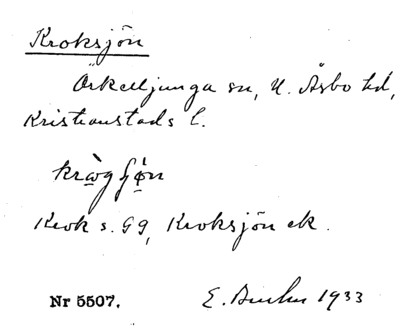 Kroksjön
Örkelljunga sn, N. Åsbo hd,
Kristianstads l.
Krok s. 99, Kroksjön ek.
Nr 5507. E. 1933